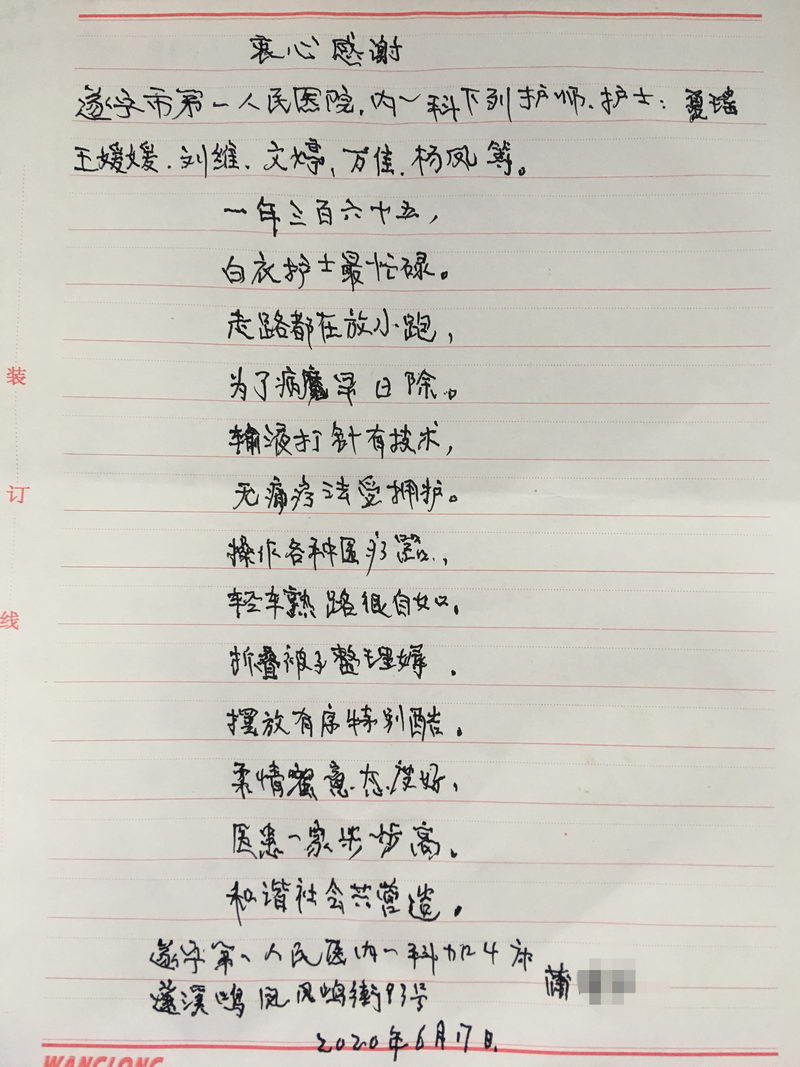 衷心感谢
遂宁市第一人民医院,内一科下列护师、护士:夏瑶
王媛媛、刘维、文婷,万佳、杨凤等。
一年三百六十五,
白衣护士最忙碌。
走路都在放小跑,
为了病魔早日除。
输液打针有技术,
无痛疗法受拥护。
操作各种医疗器,
轻车熟路很自如。
折叠被子整理
摆放有序特别酷。
柔情蜜意态度好,
医患一家步步高。
和谐社会共营造。
遂宁第一人民医内一科加4床
蒲
蓬溪鸣凤凤鸣街93号
2020年6月17日
装
订
线
WANGLONG